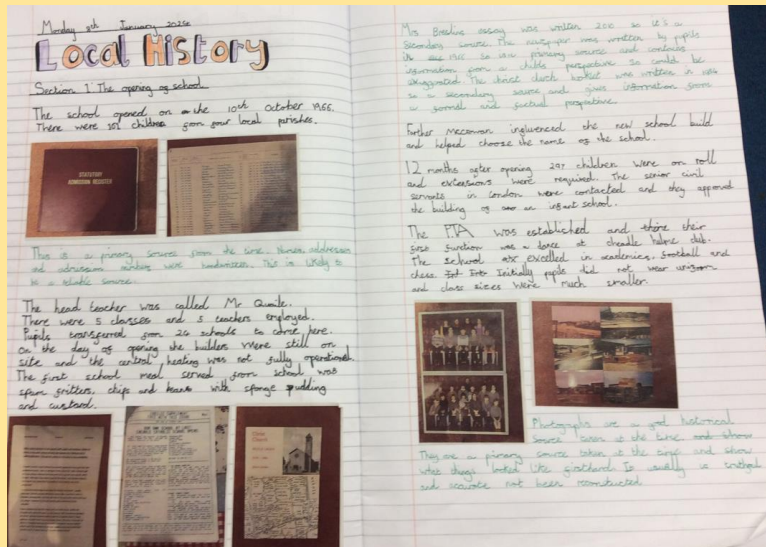 Monday 9th January 2025
Local History
Section 1 The opening of school
The school opened on the 10th October 1966.
There were 101 children from four local parishes.
STATUTORY
ADMISSION REGISTER
This is a primary source from the time. Names, addresses
and admission numbers were handwritten. This is likely to
be a reliable source.
The head teacher was called Mr Quaile.
There were 5 classes and 5 teachers employed.
Pupils transferred from 24 schools to come here.
On the day of opening the builders were still on
site and the central heating was not fully operational.
The first school meal served from school was
spam fritters, chips and beans with sponge pudding
and custard.
Christ
Church
Mrs essay was written 2010 so it's a
Secondary source. The newspaper was written by pupils
in so is a primary source and contains
information from a child's perspective so could be
exaggerated. The christ church booklet was written in
so a secondary source and gives information from
a formal and factual perspective.
Father influenced the new school build
and helped choose the name of the school.
12 months after opening 297 children were on roll
and extensions were required. The senior civil
servants in London were contacted and they approved
the building of an infant school.
The PTA was established and their
first function was a dance at cheadle hulme club.
The school excelled in academics, football and
chess. Initially pupils did not wear uniform
and class sizes were much smaller.
Photographs are a good historical
source taken at the time and show
They are a primary source taken at the time and show
what things looked like firsthand. Is usually is truthful
and accurate not been reconstructed